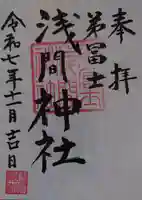 奉拝
第冨士
浅間神社
令和七年十一月吉日